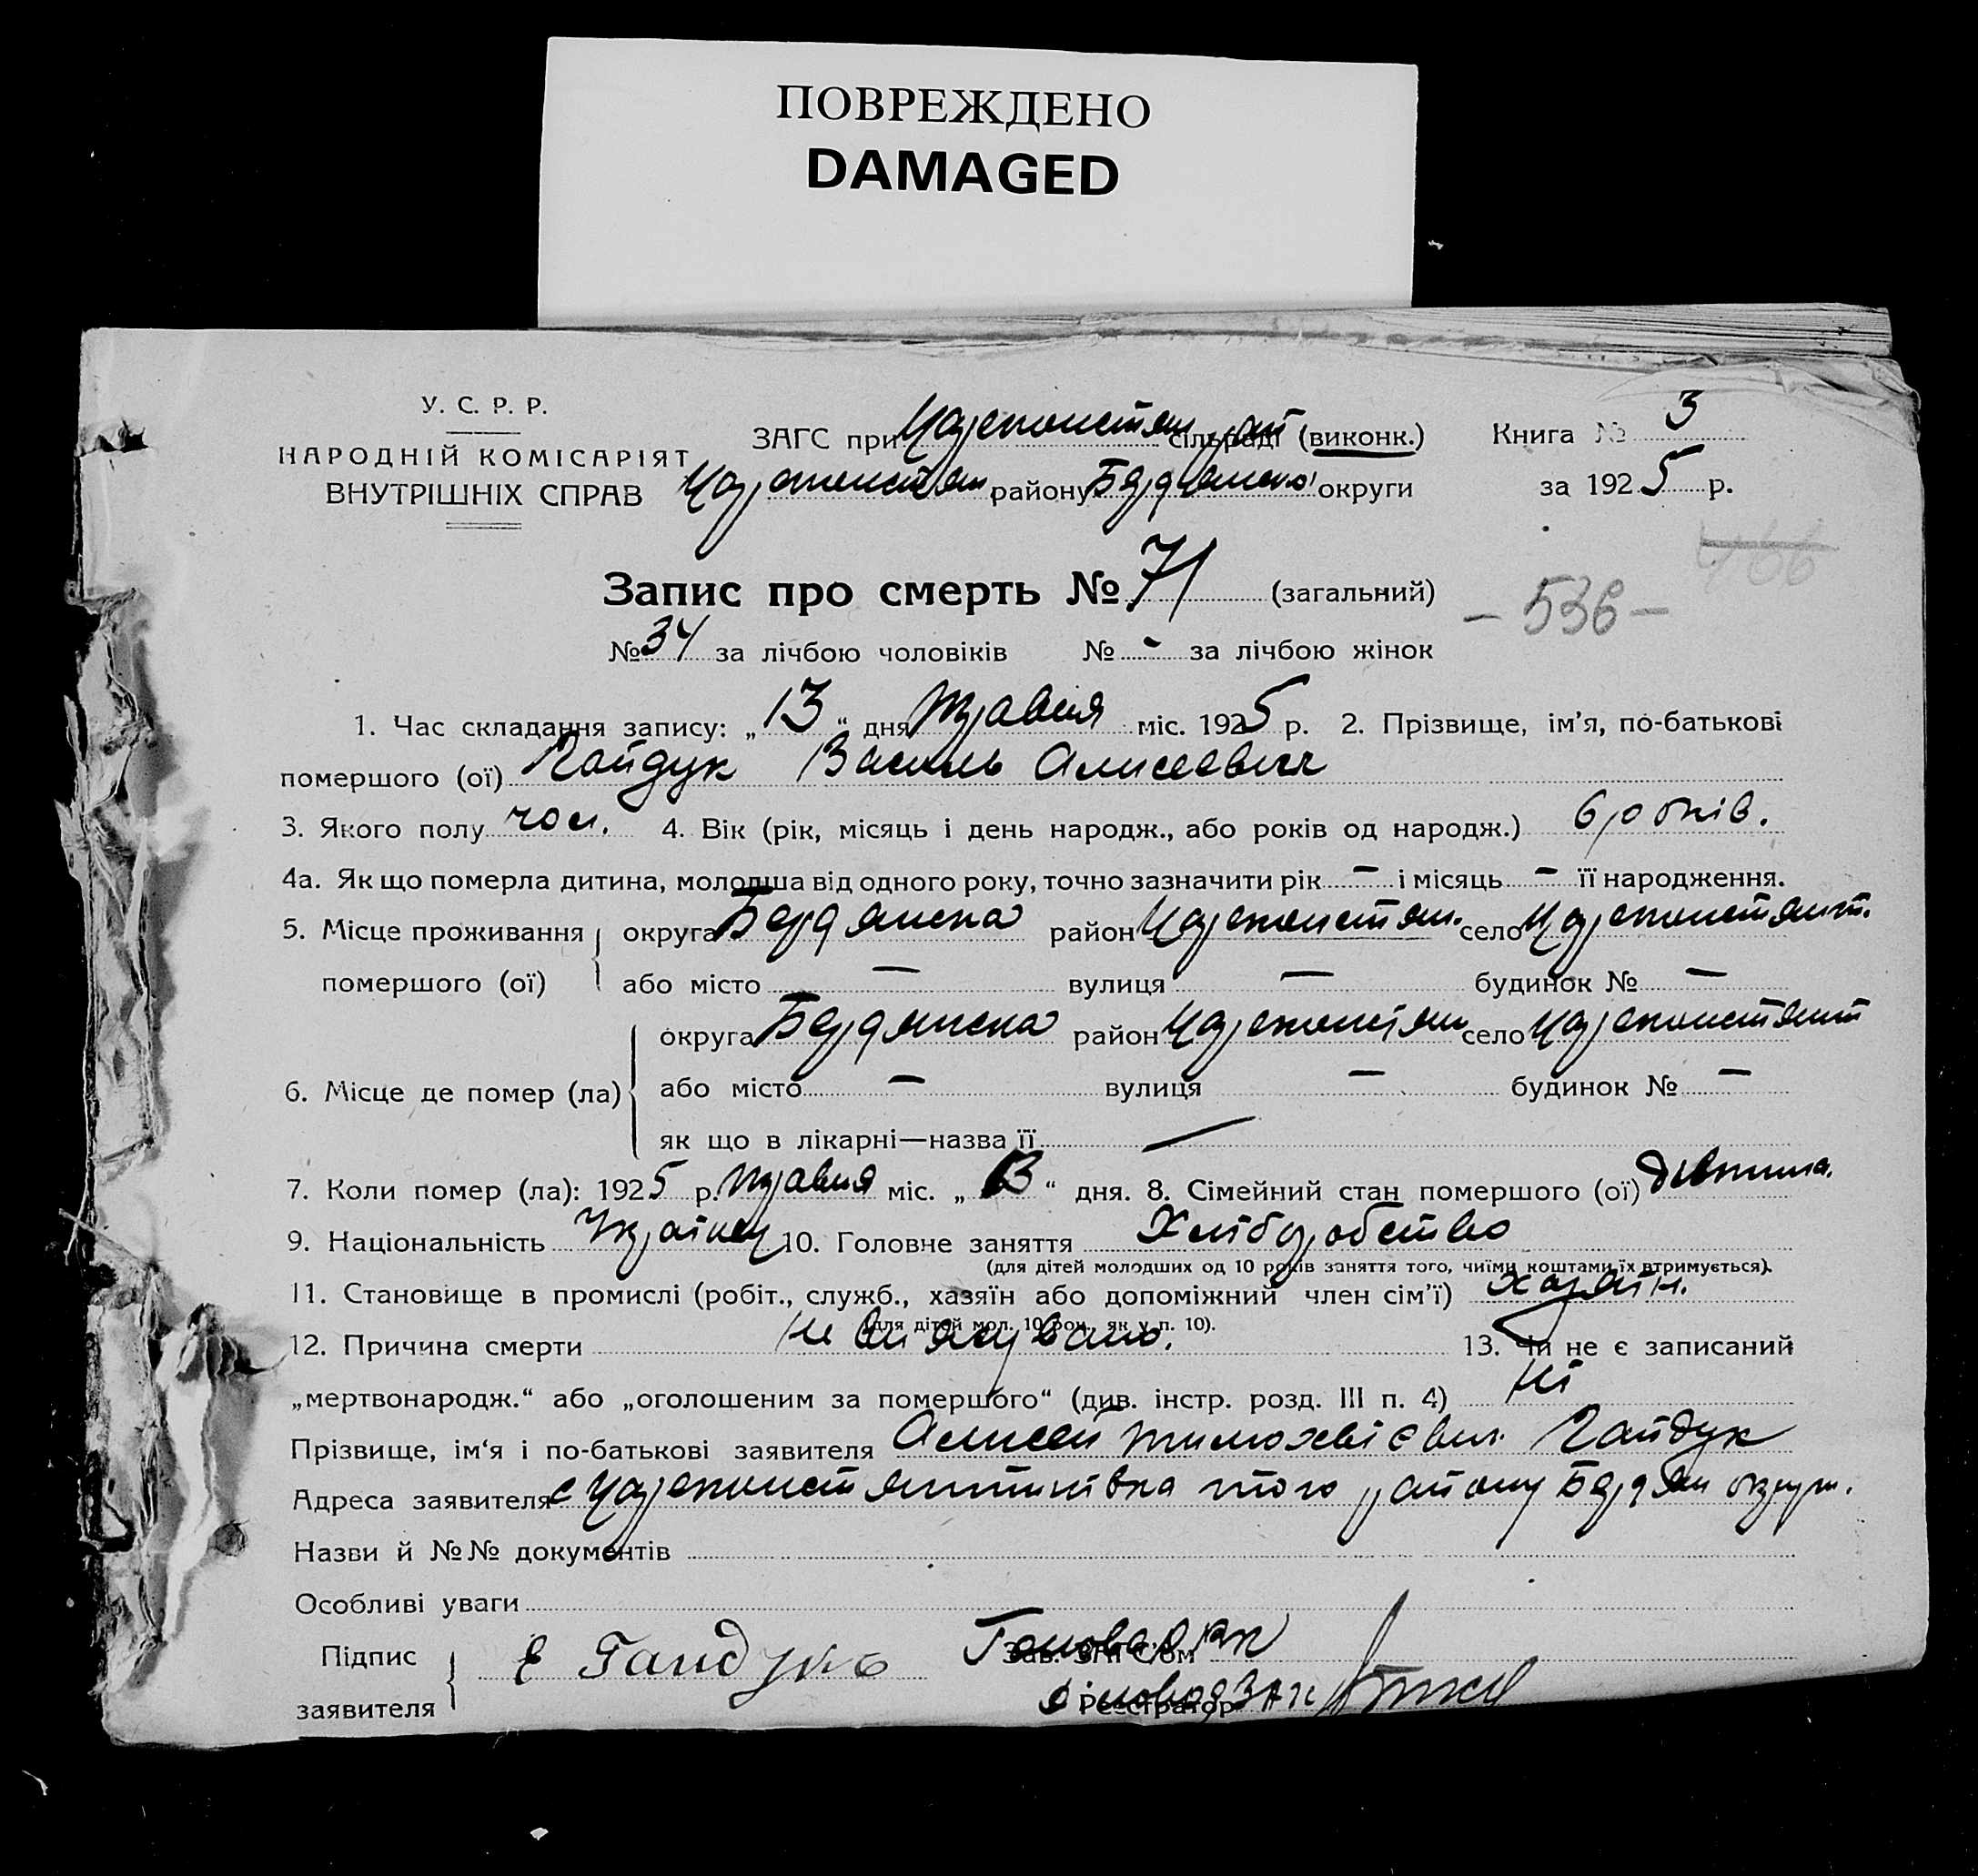 ПОВРЕЖДЕНО
DAMAGED
У. С. Р. Р.
НАРОДНІЙ КОМІСАРІЯТ
ВНУТРІШНІХ СПРАВ
ЗАГС при Цареконстян рай сільраді (виконк.)
Цареконстян району Бердянсько округи
Книга № 3
за 1925 р.
466
Запис про смерть № 71 (загальний)
- 536 -
№ 34 за лічбою чоловіків № - за лічбою жінок
1. Час складання запису: „13“ дня травня міс. 1925 р. 2. Прізвище, ім'я, по-батькові
помершого (ої) Гайдук Василь Алисеевич
3. Якого полу чол. 4. Вік (рік, місяць і день народж., або років од народж.) 6 років.
4а. Як що померла дитина, молодша від одного року, точно зазначити рік — і місяць — її народження.
5. Місце проживання помершого (ої) округа Бердянска район Цареконстян. село Цареконстянт.
або місто — вулиця — будинок № —
6. Місце де помер (ла) округа Бердянска район Цареконстян село Цареконстянт
або місто — вулиця — будинок № —
як що в лікарні—назва її —
7. Коли помер (ла): 1925 р. травня міс. „13“ дня. 8. Сімейний стан помершого (ої) дитина.
9. Національність Українец 10. Головне заняття Хліборобство
(для дітей молодших од 10 років заняття того, чиїми коштами їх втримується).
11. Становище в промислі (робіт., служб., хазяїн або допоміжний член сім'ї) хазяїн.
(для дітей мол. 10 рок., як у п. 10).
12. Причина смерти не виясувано. 13. Чи не є записаний
„мертвонародж.“ або „оголошеним за помершого“ (див. інстр. розд. III п. 4) ні
Прізвище, ім'я і по-батькові заявителя Алисей Тимохвієвич Гайдук
Адреса заявителя с Цареконстянтинівка того району Бердян округи.
Назви й №№ документів
Особливі уваги
Підпис заявителя Е Гайдукъ
Зав. ЗАГС'ом
Реєстратор